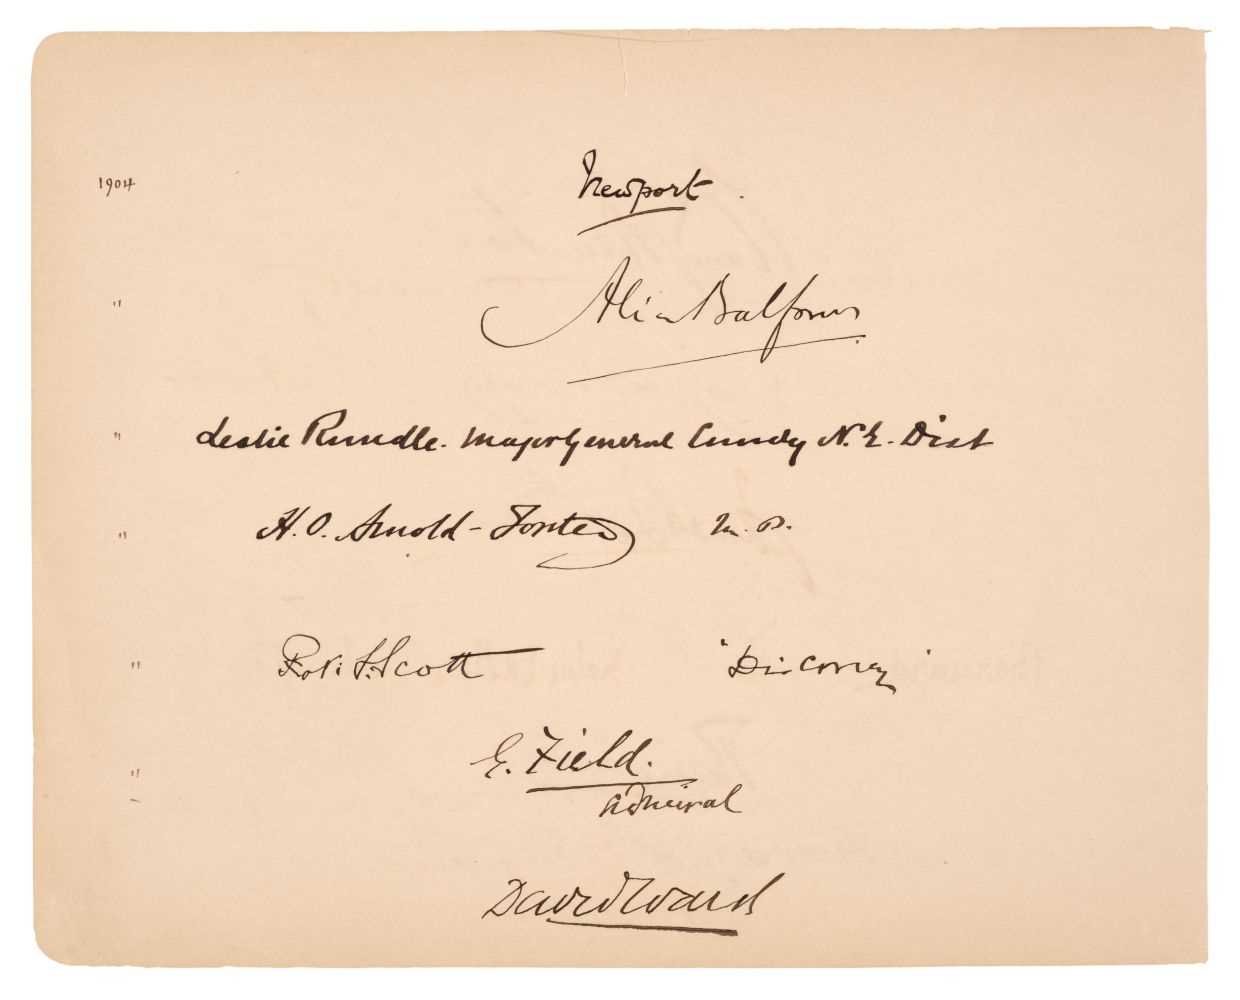 1904 Newport.
" Alice Balfour
" Leslie Rundle. Major General Comdg N.E. Dist
" H. O. Arnold-Forster M. P.
" Robt. F. Scott "Discovery"
" E. Field.
Admiral
David Ward